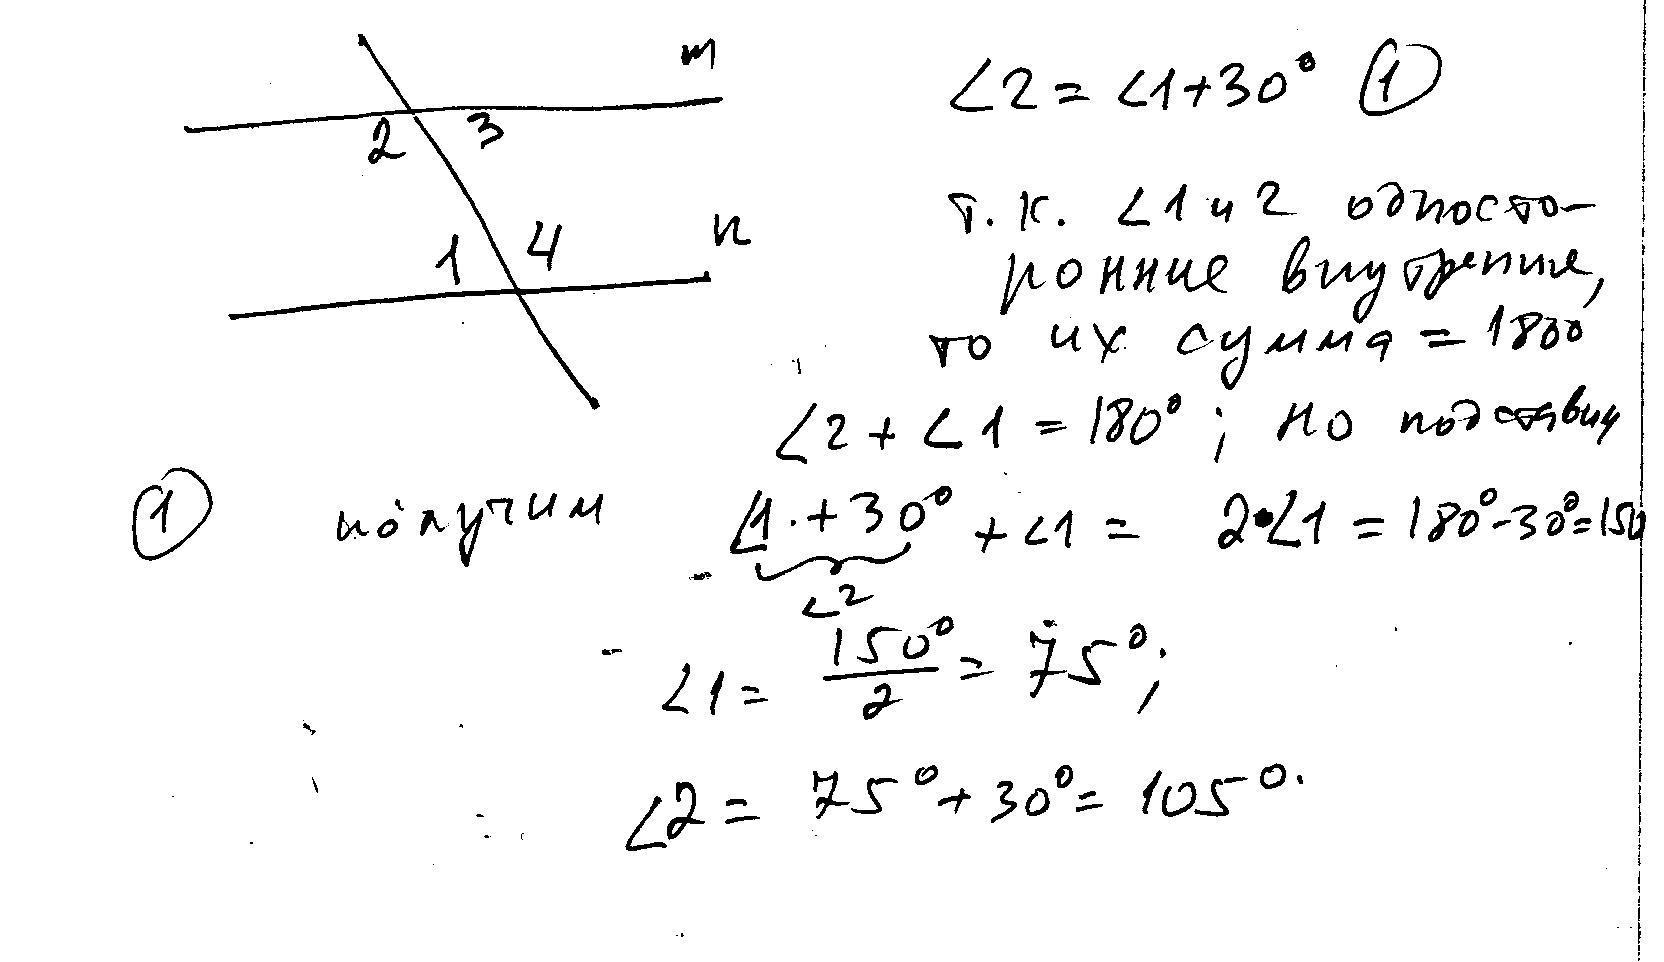 m
2 3
n
1 4
∠2 = ∠1+30° ①
т.к. ∠1 и 2 односто-
ронние внутренние,
то их сумма = 180°
∠2 + ∠1 = 180° ; но подставим
① получим ∠1 + 30° + ∠1 = 2•∠1 = 180°-30°=150
∠2
∠1 = 150°/2 = 75°;
∠2 = 75°+30°= 105°.